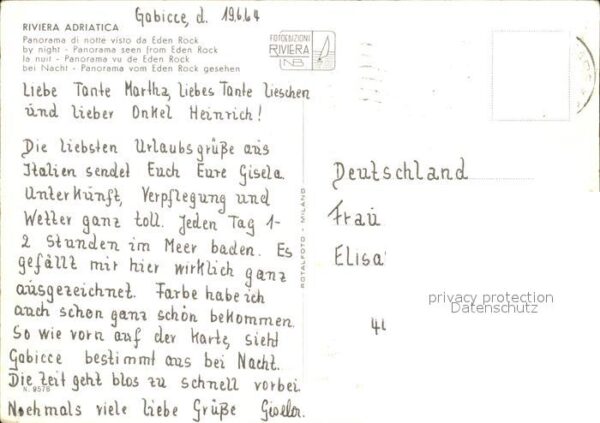 Gabicce, d. 19.6.64
RIVIERA ADRIATICA
Panorama di notte visto da Eden Rock
by night - Panorama seen from Eden Rock
la nuit - Panorama vu de Eden Rock
bei Nacht - Panorama vom Eden Rock gesehen
FOTOEDIZIONI
RIVIERA
NB
Liebe Tante Martha, liebes Tante Lieschen
und lieber Onkel Heinrich!
Die liebsten Urlaubsgrüße aus
Italien sendet Euch Eure Gisela.
Unterkunft, Verpflegung und
Wetter ganz toll. Jeden Tag 1-
2 Stunden im Meer baden. Es
gefällt mir hier wirklich ganz
ausgezeichnet. Farbe habe ich
auch schon ganz schön bekommen.
So wie vorn auf der Karte, sieht
Gabicce bestimmt aus bei Nacht.
Die Zeit geht blos zu schnell vorbei.
N. 9576
Nochmals viele liebe Grüße Gisela.
ROTALFOTO - MILANO
Deutschland
Frau
Elisa
privacy protection
Datenschutz
44